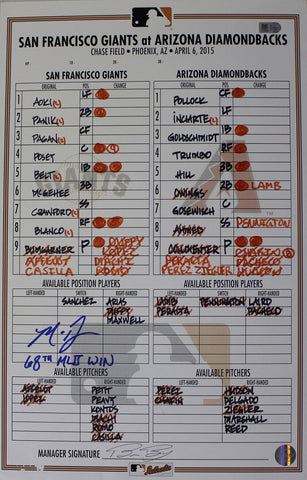 SAN FRANCISCO GIANTS at ARIZONA DIAMONDBACKS
CHASE FIELD • PHOENIX, AZ • APRIL 6, 2015
SAN FRANCISCO GIANTS
POS
CHANGE
1 AOKI (L) LF
2 PANIK (L) 2B
3 PAGAN (S) CF
4 POSEY C
5 BELT (L) 1B
6 McGEHEE 3B
7 CRAWFORD (L) SS
8 BLANCO (L) RF
9 BUMGARNER P DUFFY
AFFELDT LOPEZ MACHI
CASILLA ROMO
ARIZONA DIAMONDBACKS
POS
CHANGE
1 POLLOCK CF
2 INCIARTE (L) RF
3 GOLDSCHMIDT 1B
4 TRUMBO LF
5 HILL 3B
6 OWINGS 2B LAMB
7 GOSEWISCH C
8 AHMED SS PENNINGTON
9 COLLMENTER P CHAFIN
PERALTA PACHECO
PEREZ ZIEGLER HUDSON
AVAILABLE POSITION PLAYERS
LEFT-HANDED SWITCH RIGHT-HANDED
SANCHEZ ARIAS
DUFFY
MAXWELL
AVAILABLE POSITION PLAYERS
LEFT-HANDED SWITCH RIGHT-HANDED
LAMB PENNINGTON LAIRD
PERALTA PACHECO
68TH MLB WIN
AVAILABLE PITCHERS
LEFT-HANDED RIGHT-HANDED
AFFELDT PETIT
LOPEZ PEAVY
KONTOS
MACHI
ROMO
CASILLA
AVAILABLE PITCHERS
LEFT-HANDED RIGHT-HANDED
PEREZ HUDSON
CHAFIN DELGADO
ZIEGLER
MARSHALL
REED
MANAGER SIGNATURE